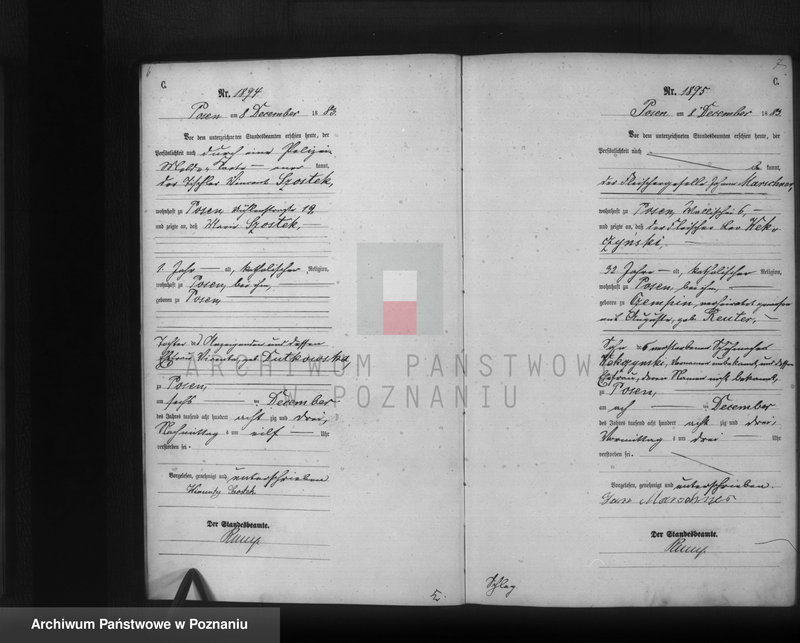 6
C.
Nr. 1894
Posen am 8 December 1883.
Vor dem unterzeichneten Standesbeamten erschien heute, der
Persönlichkeit nach durch eine Polizei
Melde-Karte — kannt,
der Tischler Vincent Szostek,
wohnhaft zu Posen 19,
und zeigte an, daß Marie Szostek, —
1 Jahr — alt, katholischer Religion,
wohnhaft zu Posen, bei ihm, —
geboren zu Posen
Tochter des Anzeigenden und dessen
geb. Dutkowska
zu Posen,
am sechs — ten December
des Jahres tausend acht hundert acht zig und drei,
Nachmittag s um elf — Uhr
verstorben sei.
Vorgelesen, genehmigt und unterschrieben
Szostek
Der Standesbeamte.
7
C.
Nr. 1895
Posen am 8 December 1883.
Vor dem unterzeichneten Standesbeamten erschien heute, der
Persönlichkeit nach
kannt,
der Fleischergeselle Johann Marschner,
wohnhaft zu Posen Wallischei 6, —
und zeigte an, daß der Fleischer Leo Wek-
czynski, —
32 Jahre — alt, katholischer Religion,
wohnhaft zu Posen, bei ihm, —
geboren zu Czempin, verheirathet gewesen
mit Auguste, geb. Reuter, —
Sohn des verstorbenen Schuhmacher
Wekczynski, Vorname unbekannt und dessen
Ehefrau, deren Name nicht bekannt,
zu Posen,
am ach — ten December
des Jahres tausend acht hundert acht zig und drei,
Vormittag s um drei — Uhr
verstorben sei.
Vorgelesen, genehmigt und unterschrieben.
Marschner
Der Standesbeamte.
ARCHIWUM PAŃSTWOWE
W POZNANIU
Archiwum Państwowe w Poznaniu